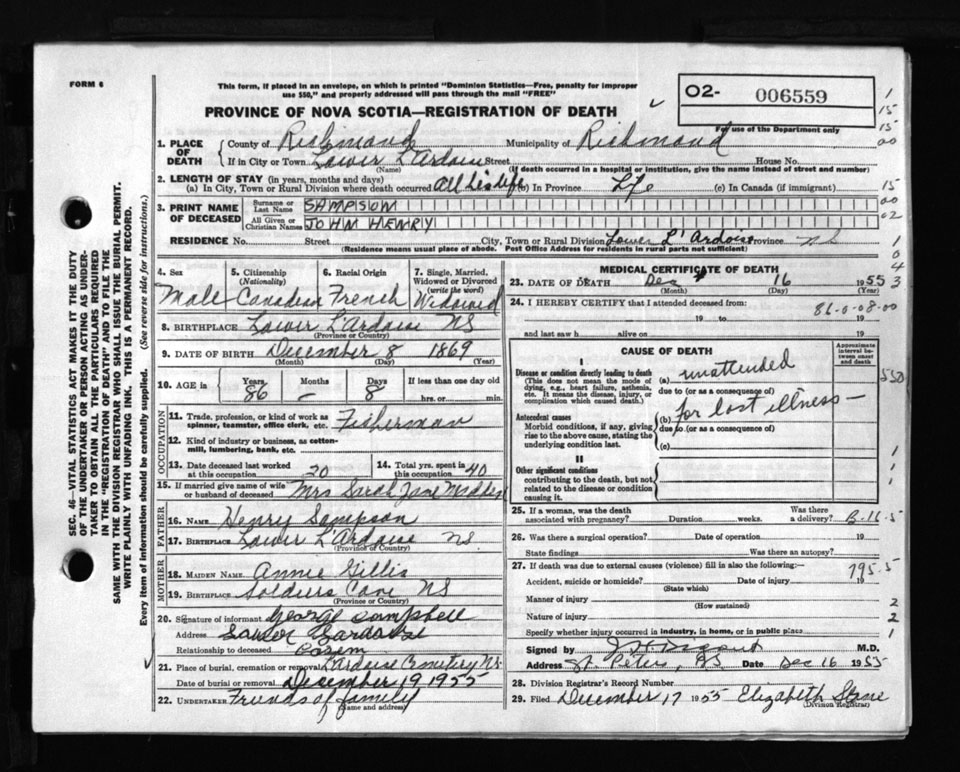 FORM 6
This form, if placed in an envelope, on which is printed "Dominion Statistics—Free, penalty for improper
use $50," and properly addressed will pass through the mail "FREE"
O2- 006559
PROVINCE OF NOVA SCOTIA—REGISTRATION OF DEATH
For use of the Department only
1. PLACE OF DEATH
County of Richmond Municipality of Richmond
If in City or Town Lower L'Ardoise Street House No.
(Name) (If death occurred in a hospital or institution, give the name instead of street and number)
2. LENGTH OF STAY (in years, months and days)
(a) In City, Town or Rural Division where death occurred All his life (b) In Province Life (c) In Canada (if immigrant)
3. PRINT NAME OF DECEASED
Surname or Last Name SAMPSON
All Given or Christian Names JOHN HENRY
RESIDENCE No. Street City, Town or Rural Division Lower L'Ardoise Province NS
(Residence means usual place of abode. Post Office Address for residents in rural parts not sufficient)
4. Sex Male
5. Citizenship (Nationality) Canadian
6. Racial Origin French
7. Single, Married, Widowed or Divorced (write the word) Widowed
8. BIRTHPLACE Lower L'Ardoise NS
(Province or Country)
9. DATE OF BIRTH December 8 1869
(Month) (Day) (Year)
10. AGE in Years 86 Months — Days 8 If less than one day old
hrs. or min.
OCCUPATION
11. Trade, profession, or kind of work as
spinner, teamster, office clerk, etc. Fisherman
12. Kind of industry or business, as cotton-
mill, lumbering, bank, etc.
13. Date deceased last worked at this occupation 20
14. Total yrs. spent in this occupation 40
15. If married give name of wife
or husband of deceased Mrs Sarah Jane
FATHER
16. NAME Henry Sampson
17. BIRTHPLACE Lower L'Ardoise NS
(Province or Country)
MOTHER
18. MAIDEN NAME Annie Gillis
19. BIRTHPLACE Soldiers Cove NS
(Province or Country)
20. Signature of informant George Campbell
Address
Relationship to deceased
21. Place of burial, cremation or removal L'Ardoise Cemetery NS.
Date of burial or removal December 19 1955
22. UNDERTAKER Friends of family
(Name and address)
MEDICAL CERTIFICATE OF DEATH
23. DATE OF DEATH Dec 16 1955
(Month) (Day) (Year)
24. I HEREBY CERTIFY that I attended deceased from:
19 to 19
86-0-08-00
and last saw h alive on 19
CAUSE OF DEATH
Approximate interval between onset and death
I
Disease or condition directly leading to death
(This does not mean the mode of
dying, e.g., heart failure, asthenia,
etc. It means the disease, injury, or
complication which caused death.)
(a) unattended
due to (or as a consequence of)
Antecedent causes
Morbid conditions, if any, giving
rise to the above cause, stating the
underlying condition last.
(b) for last illness—
due to (or as a consequence of)
(c)
II
Other significant conditions
contributing to the death, but not
related to the disease or condition
causing it.
25. If a woman, was the death
associated with pregnancy? Duration weeks. Was there a delivery?
26. Was there a surgical operation? Date of operation 19
State findings Was there an autopsy?
27. If death was due to external causes (violence) fill in also the following:—
795.5
Accident, suicide or homicide? Date of injury 19
(State which)
Manner of injury
(How sustained)
Nature of injury
Specify whether injury occurred in industry, in home, or in public place
Signed by M.D.
Address St. Peters, NS Date Dec 16 1955
28. Division Registrar's Record Number
29. Filed December 17 1955 Elizabeth
(Division Registrar)
SEC. 46—VITAL STATISTICS ACT MAKES IT THE DUTY
OF THE UNDERTAKER OR PERSON ACTING AS UNDER-
TAKER TO OBTAIN ALL THE PARTICULARS REQUIRED
IN THE "REGISTRATION OF DEATH" AND TO FILE THE
SAME WITH THE DIVISION REGISTRAR WHO SHALL ISSUE THE BURIAL PERMIT.
WRITE PLAINLY WITH UNFADING INK. THIS IS A PERMANENT RECORD.
Every item of information should be carefully supplied. (See reverse side for instructions.)